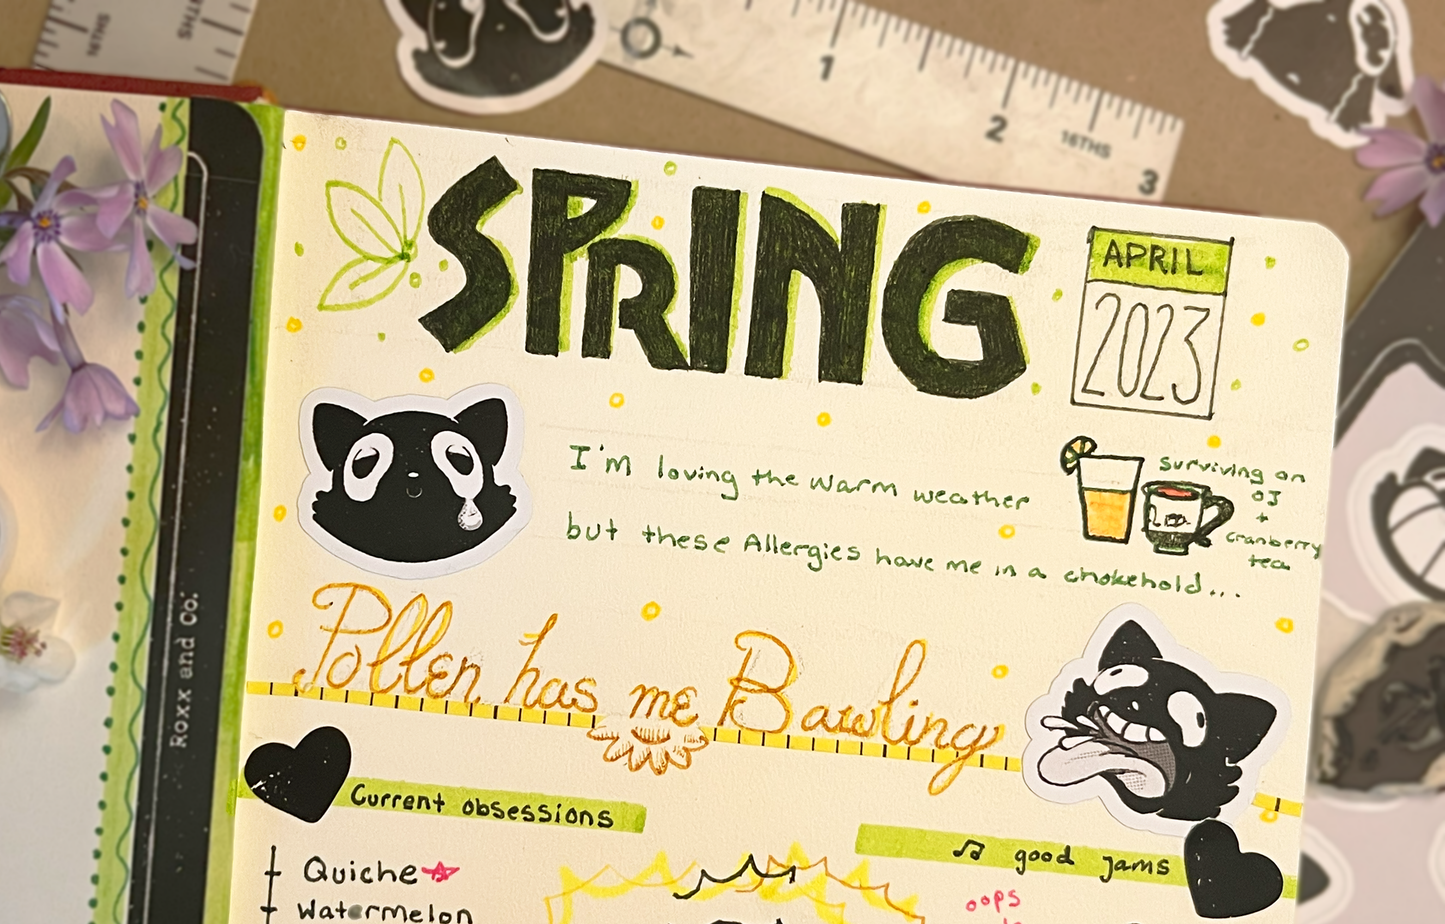 8THS
8THS
1
2
16THS
3
SPRING
APRIL
2023
I'm loving the warm weather
but these Allergies have me in a chokehold...
surviving on
OJ
+
cranberry
tea
Pollen has me Bawling
Roxx and Co.
Current obsessions
Quiche
Watermelon
♫ good jams
oops